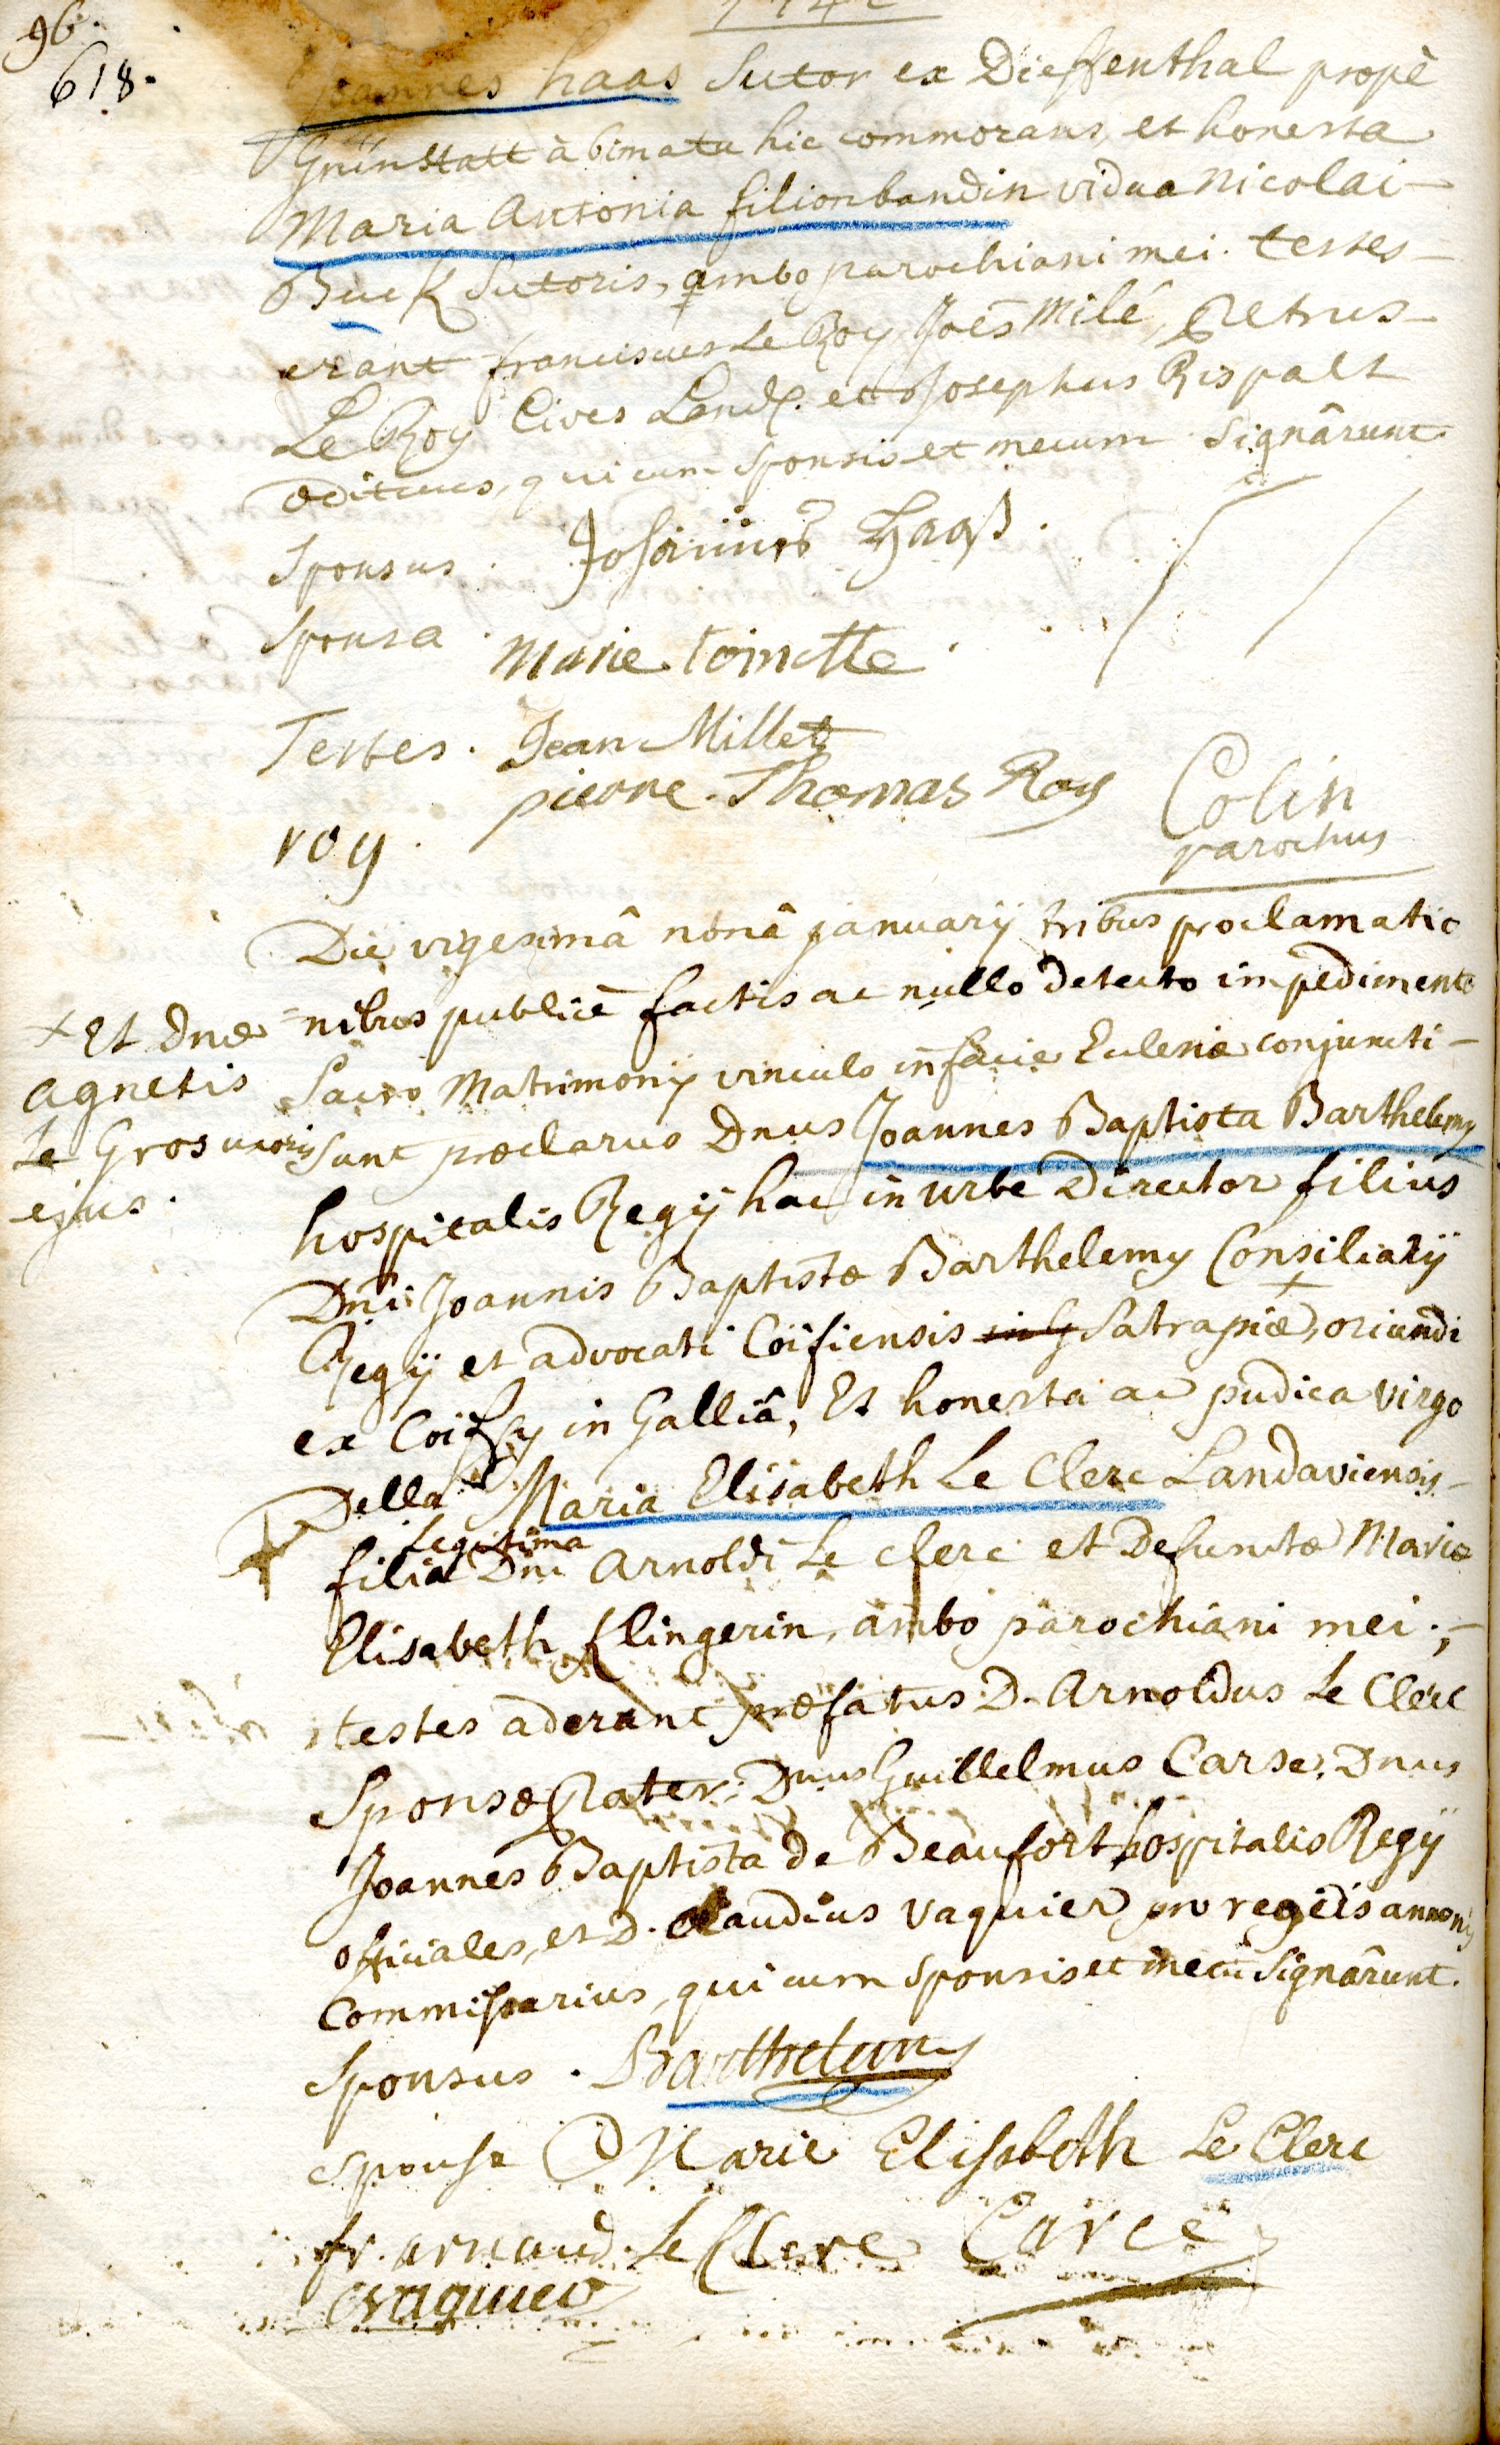 96.
618.
Joannes haas Sutor ex Dieffenthal propè
Grünstatt à bimatu hic commorans, et honesta
Maria Antonia filionbandin vidua Nicolai
Buck Sutoris, ambo parochiani mei. testes
erant franciscus Le Roy Joēs Milé, Petrus
Le Roy Cives Land. et Josephus Rispalt
ædituus, qui cum Sponsis et mecum Signârunt
Sponsus. Johannes Haaß.
Sponsa. Marie toinette.
Testes. Jean Millet
pierre. Thomas Roy
roy.
Colin
parochus
Die vigesimâ nonâ january tribus proclamatio
=nibus publicè factis ac nullo detecto impedimento
Sacro Matrimonij vinculo in facie Eclesiæ conjuncti
sunt præclarus Dnus Joannes Baptista Barthelemy
hospitalis Regij hac in urbe Director filius
Dni Joannis Baptistæ Barthelemy Consiliarij
Regij et advocati Coifiensis in Satrapiæ, oriundi
ex Coiffy in Galliâ, Et honesta ac pudica virgo
Della Maria Elisabeth Le Clerc Landaviensis
Legitima
filia Dni Arnoldi Le Clerc et Defunctæ Mariæ
Elisabeth Klingerin, ambo parochiani mei;
testes aderant præfatus D. Arnoldus Le Clerc
Sponsæ Pater, Dnus Guillelmus Carse, Dnus
Joannes Baptista de Beaufort hospitalis Regij
officiales, et D. Claudius Vaquier pro regiis annonis
Commissarius, qui cum Sponsis et mecū Signârunt.
Sponsus. Barthelemy
Sponsa Marie Elisabeth Le Clerc
fr. arnaud Le Clerc Carce
vaquier
× Et Dnæ
Agnetis
Le Gros uxoris
ejus.